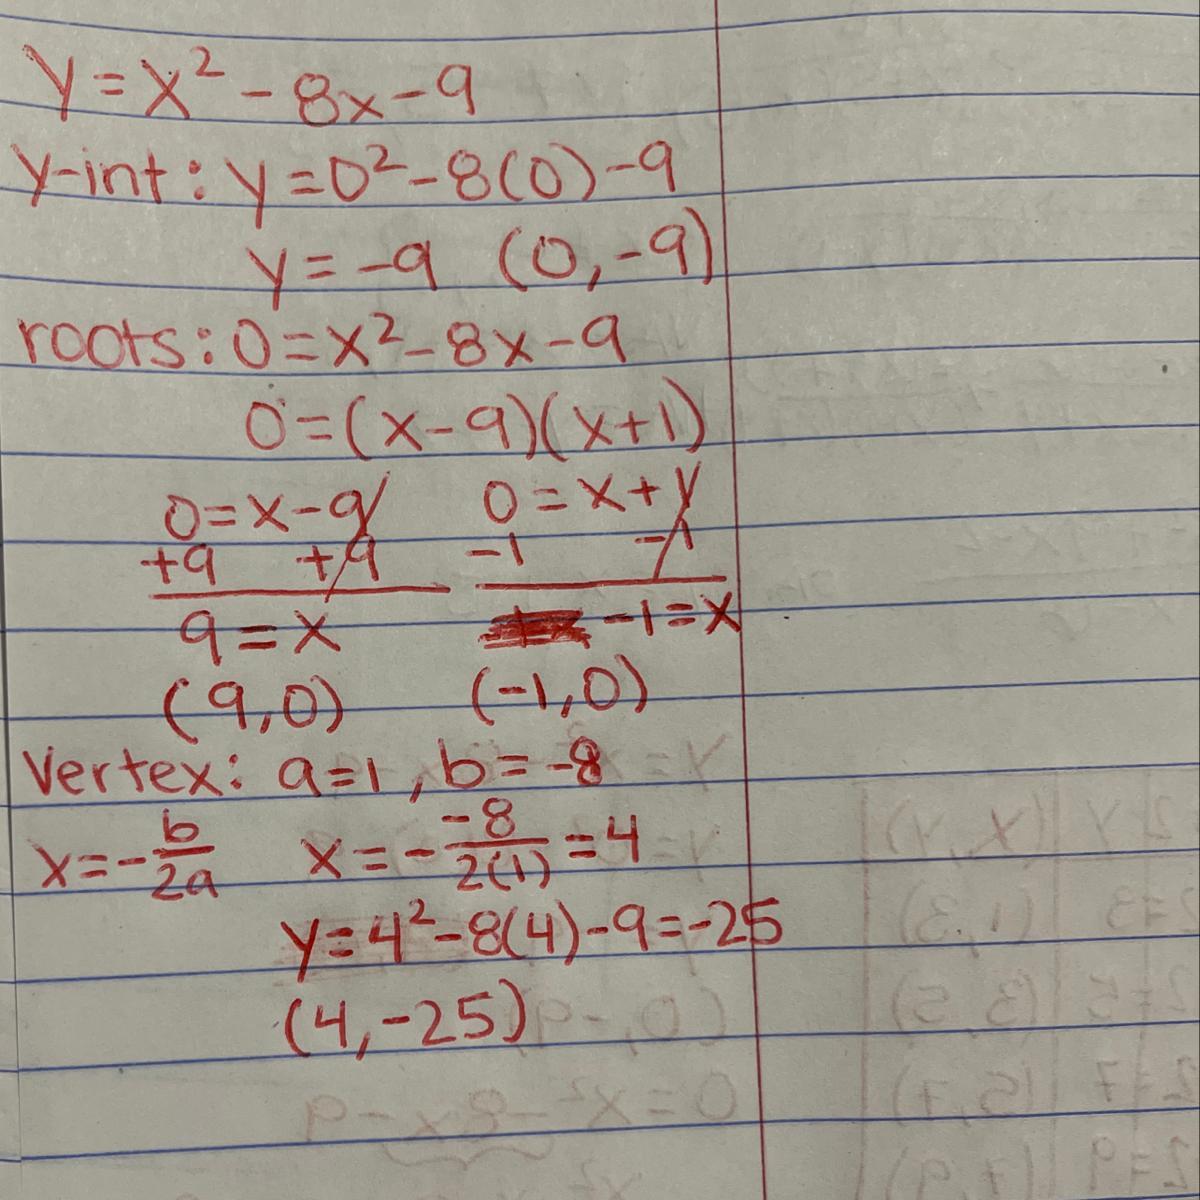 y = x² - 8x - 9
y-int: y = 0² - 8(0) - 9
y = -9 (0, -9)
roots: 0 = x² - 8x - 9
0 = (x - 9)(x + 1)
0 = x - 9 0 = x + 1
+9 +9 -1 -1
9 = x -1 = x
(9, 0) (-1, 0)
Vertex: a = 1, b = -8
x = -b/2a x = - -8/2(1) = 4
y = 4² - 8(4) - 9 = -25
(4, -25)